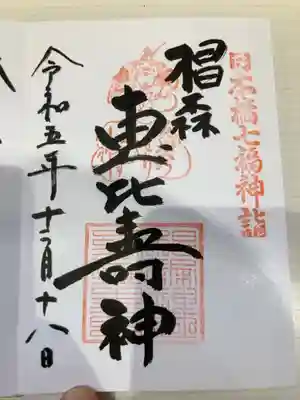 日本橋七福神詣
椙森
恵比壽神
令和五年十二月十八日